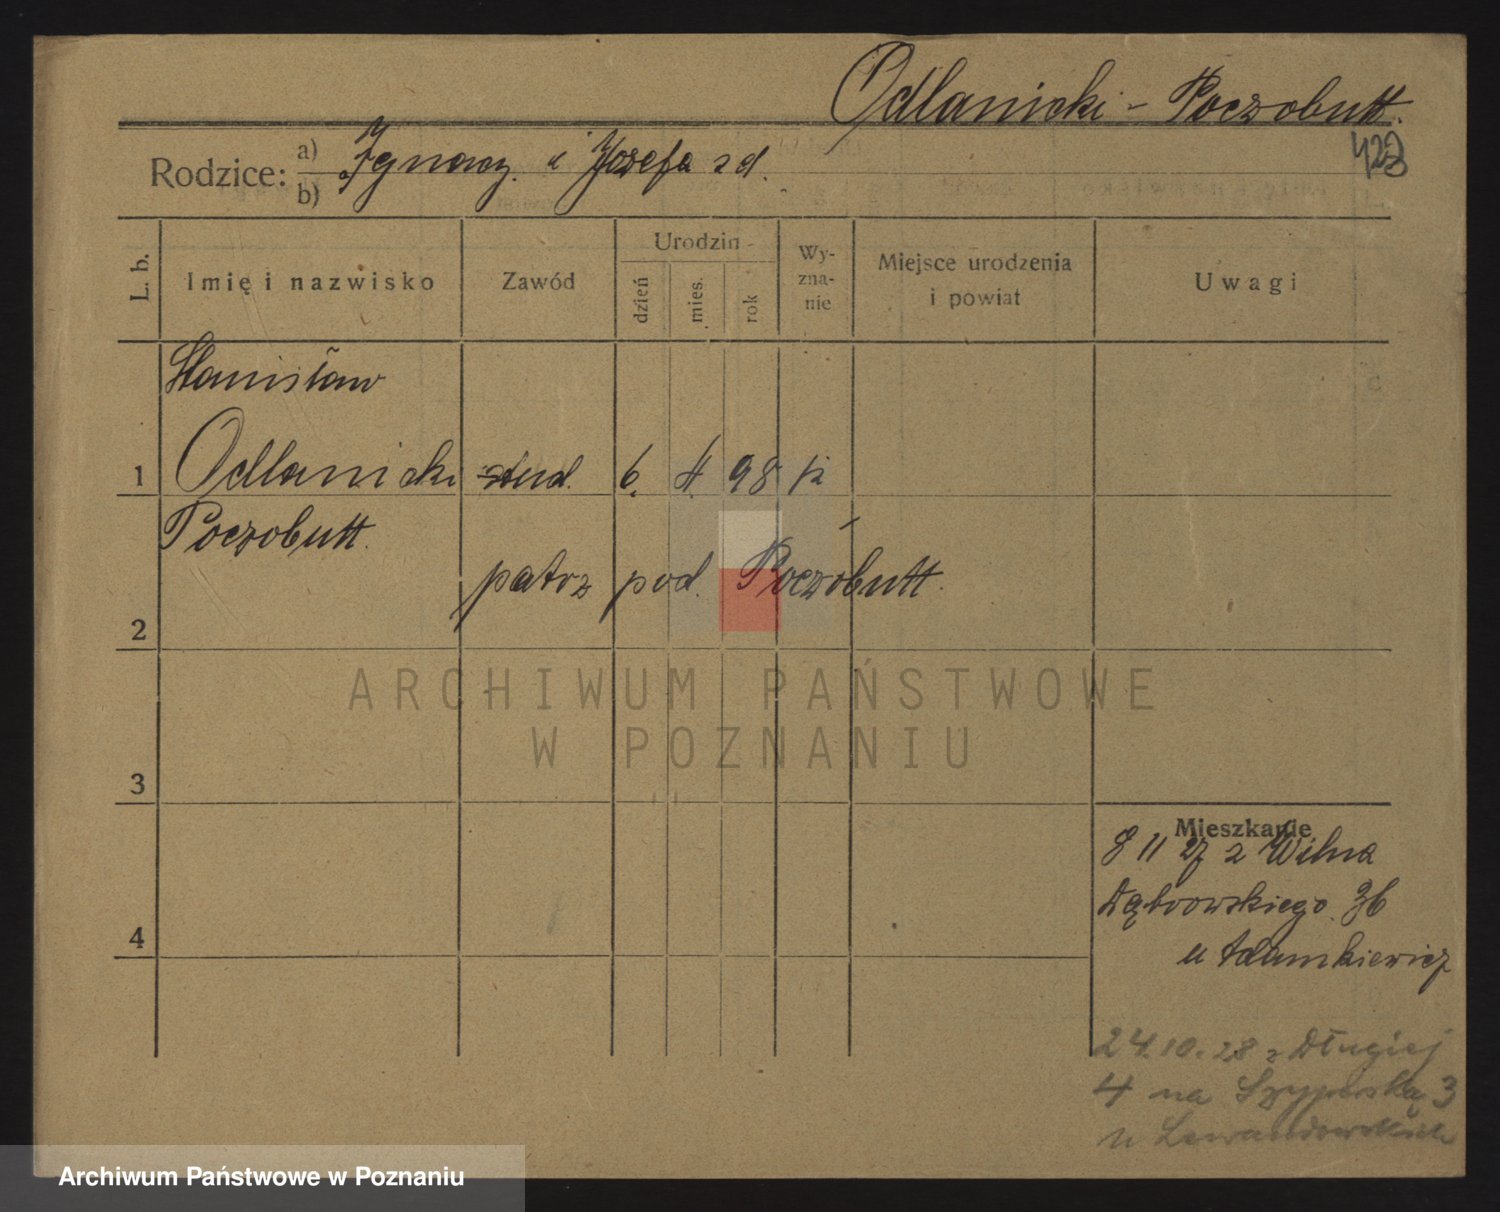 Odlanicki - Poczobutt.
422
Rodzice: a) Ignacy. i Józefa zd.
b)
L. b. Imię i nazwisko Zawód Urodzin dzień mies. rok Wy-zna-nie Miejsce urodzenia i powiat Uwagi
Stanisław
1 Odlanicki stud. 6. 4. 98
Poczobutt.
patrz pod. Poczóbutt.
2
ARCHIWUM PAŃSTWOWE
W POZNANIU
3
Mieszkanie
8 11 27 z Wilna
Dąbrowskiego 36
4
u Adamkiewicz
24.10.28 z Długiej
4 na Szyperską 3
u Lewandowskich
Archiwum Państwowe w Poznaniu